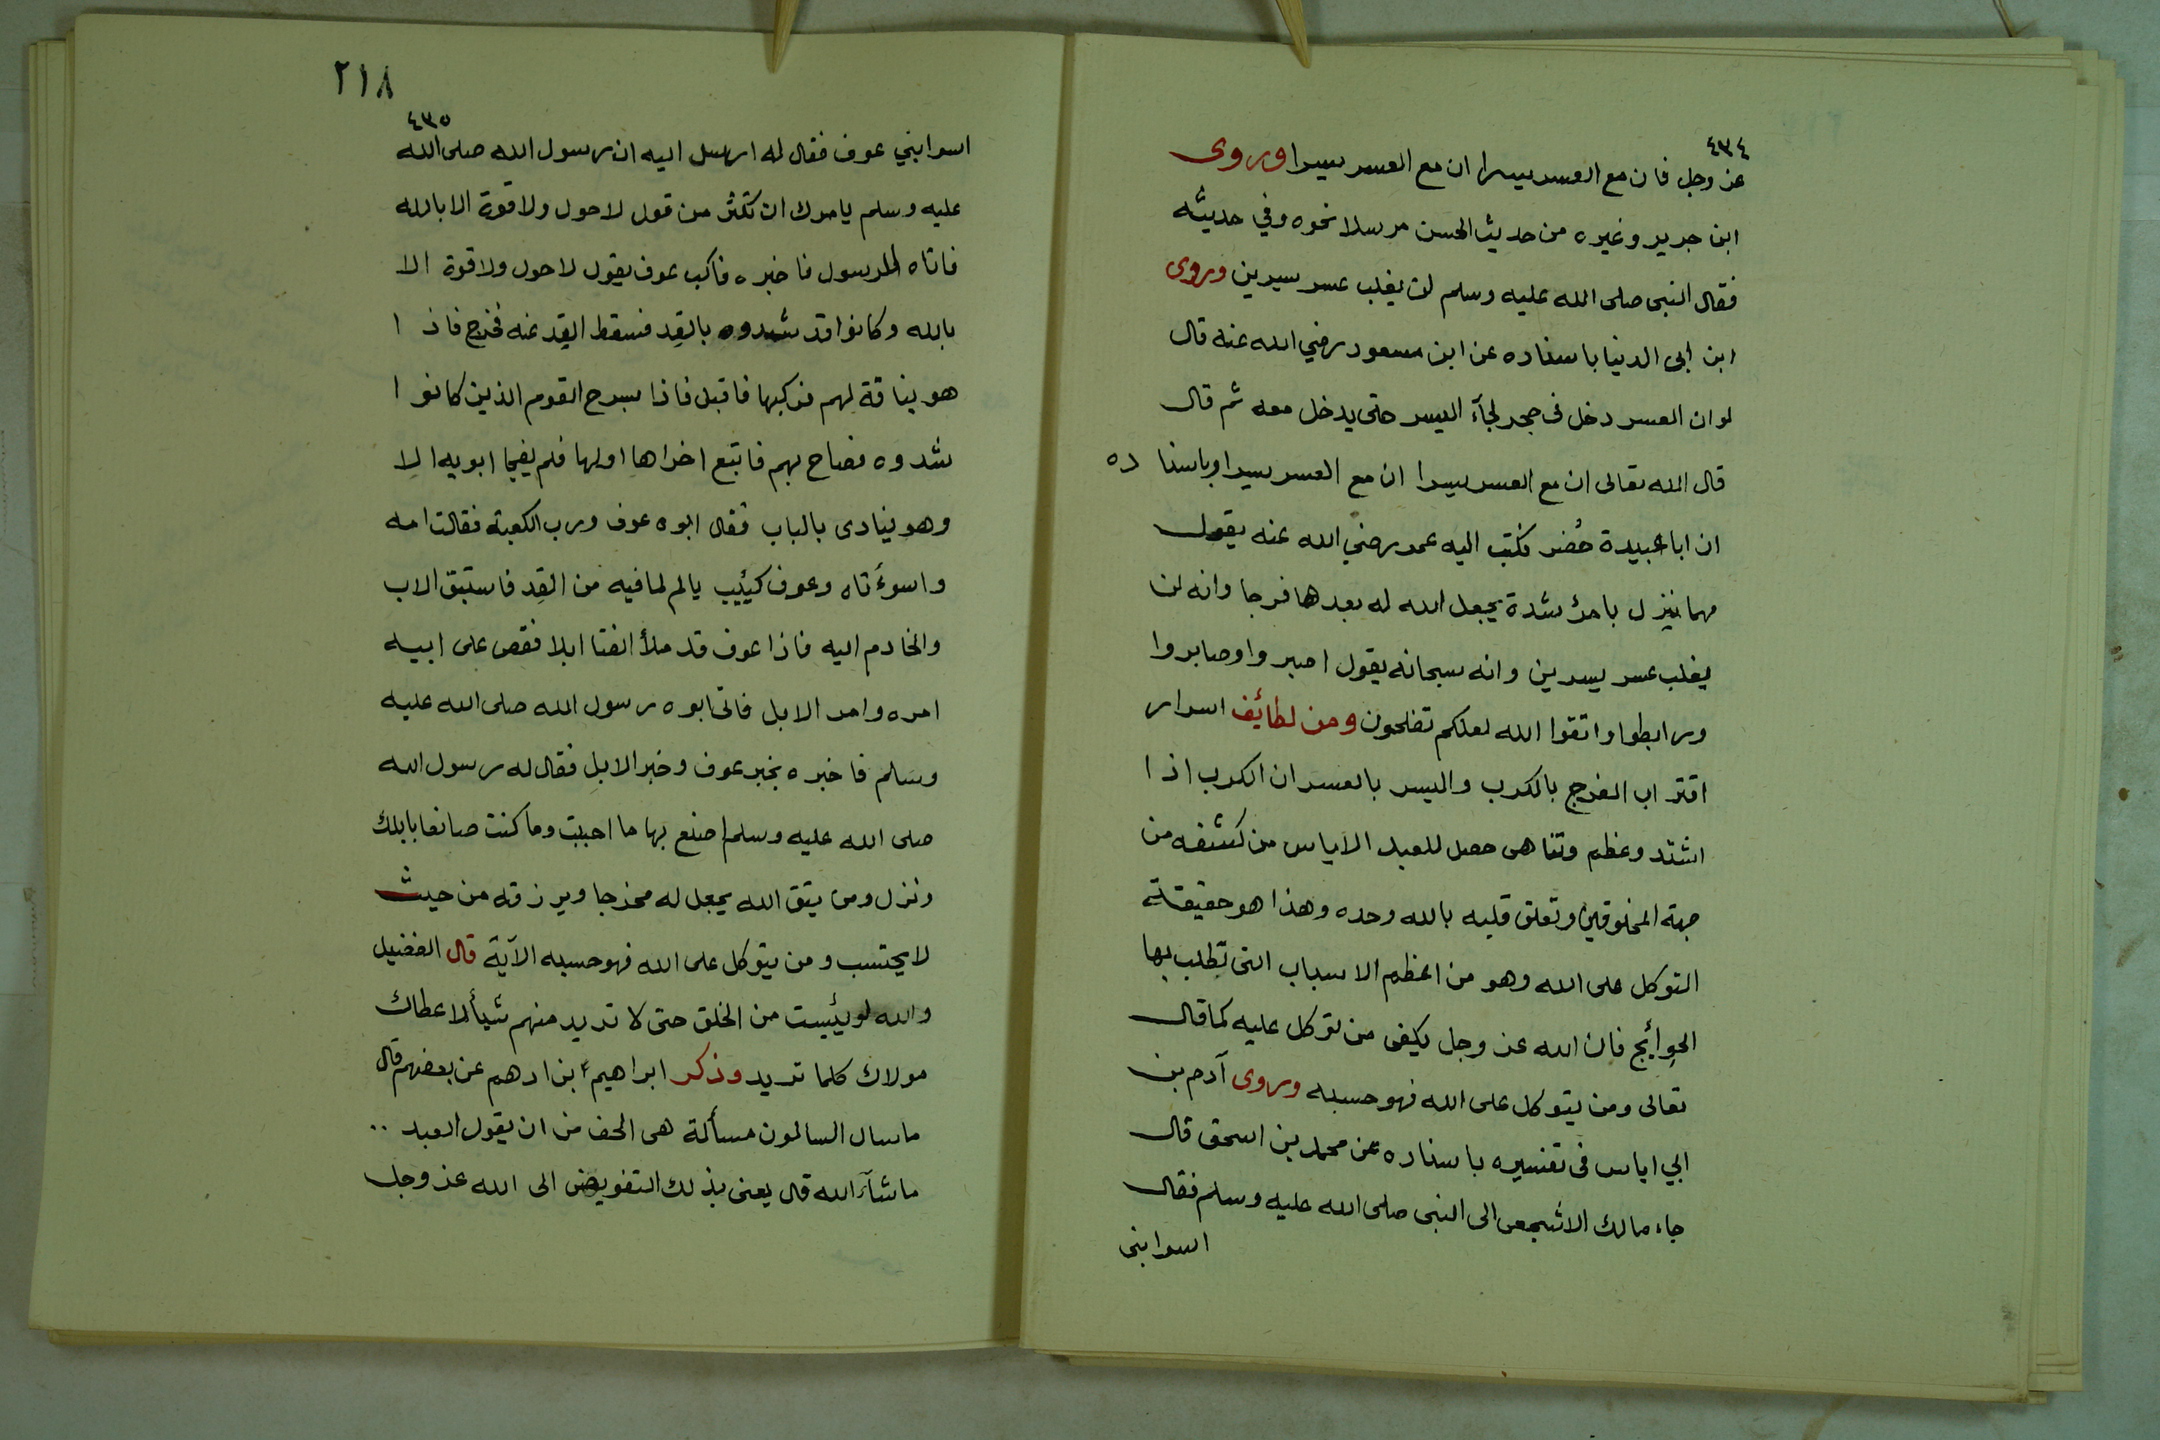 ٤٣٤
عز وجل فان مع العسر يسرا ان مع العسر يسرا وروى
ابن جرير وغيره من حديث الحسن مرسلا نحوه وفي حديثه
فقال النبى صلى الله عليه وسلم لن يغلب عسر يسرين وروى
ابن ابى الدنيا باسناده عن ابن مسعود رضي الله عنه قال
لو ان العسر دخل فى حجر لجآء اليسر حتى يدخل معه ثم قال
قال الله تعالى ان مع العسر يسرا ان مع العسر يسرا وباسناده
ان ابا عبيدة حُضر فكتب اليه عمر رضي الله عنه يقول
مهما ينزل بامرئ شدة يجعل الله له بعدها فرجا وانه لن
يغلب عسر يسرين وانه سبحانه يقول اصبروا وصابروا
ورابطوا واتقوا الله لعلكم تفلحون ومن لطائف اسرار
اقتراب الفرج بالكرب واليسر بالعسر ان الكرب اذا
اشتد وعظم وتناهى حصل للعبد الاياس من كشفه من
جهة المخلوقين وتعلق قلبه بالله وحده وهذا هو حقيقة
التوكل على الله وهو من اعظم الاسباب التى تطلب بها
الحوائج فان الله عز وجل يكفى من توكل عليه كما قال
تعالى ومن يتوكل على الله فهو حسبه وروى آدم بن
ابي اياس فى تفسيره باسناده عن محمد بن اسحق قال
جاء مالك الاشجعى الى النبى صلى الله عليه وسلم فقال
اسر ابنى
٢١٨
٤٣٥
اسر ابني عوف فقال له ارسل اليه ان رسول الله صلى الله
عليه وسلم يامرك ان تكثر من قول لا حول ولا قوة الا بالله
فاتاه الرسول فاخبره فاكب عوف يقول لا حول ولا قوة الا
بالله وكانوا قد شدوه بالقِد فسقط القِد عنه فخرج فاذا
هو بناقة لهم فركبها فاقبل فاذا بسرح القوم الذين كانوا
شدوه فصاح بهم فاتبع اخراها اولها فلم يفجا ابويه الا
وهو ينادى بالباب فقال ابوه عوف ورب الكعبة فقالت امه
واسوءَتاه وعوف كئيب يالم لما فيه من القِد فاستبق الاب
والخادم اليه فاذا عوف قد ملأ الفنا ابلا فقص على ابيه
امره وامر الابل فاتى ابوه رسول الله صلى الله عليه
وسلم فاخبره بخبر عوف وخبر الابل فقال له رسول الله
صلى الله عليه وسلم اصنع بها ما احببت وما كنت صانعا بابلك
ونزل ومن يتق الله يجعل له مخرجا ويرزقه من حيث
لا يحتسب ومن يتوكل على الله فهو حسبه الآية قال الفضيل
والله لو يئيست من الخلق حتى لا تريد منهم شيأ لاعطاك
مولاك كلما تريد وذكر ابراهيم بن ادهم عن بعضهم قال
ما سال السالمون مسألة هى الحف من ان يقول العبد ..
ما شآء الله قال يعنى بذلك التفويض الى الله عز وجل